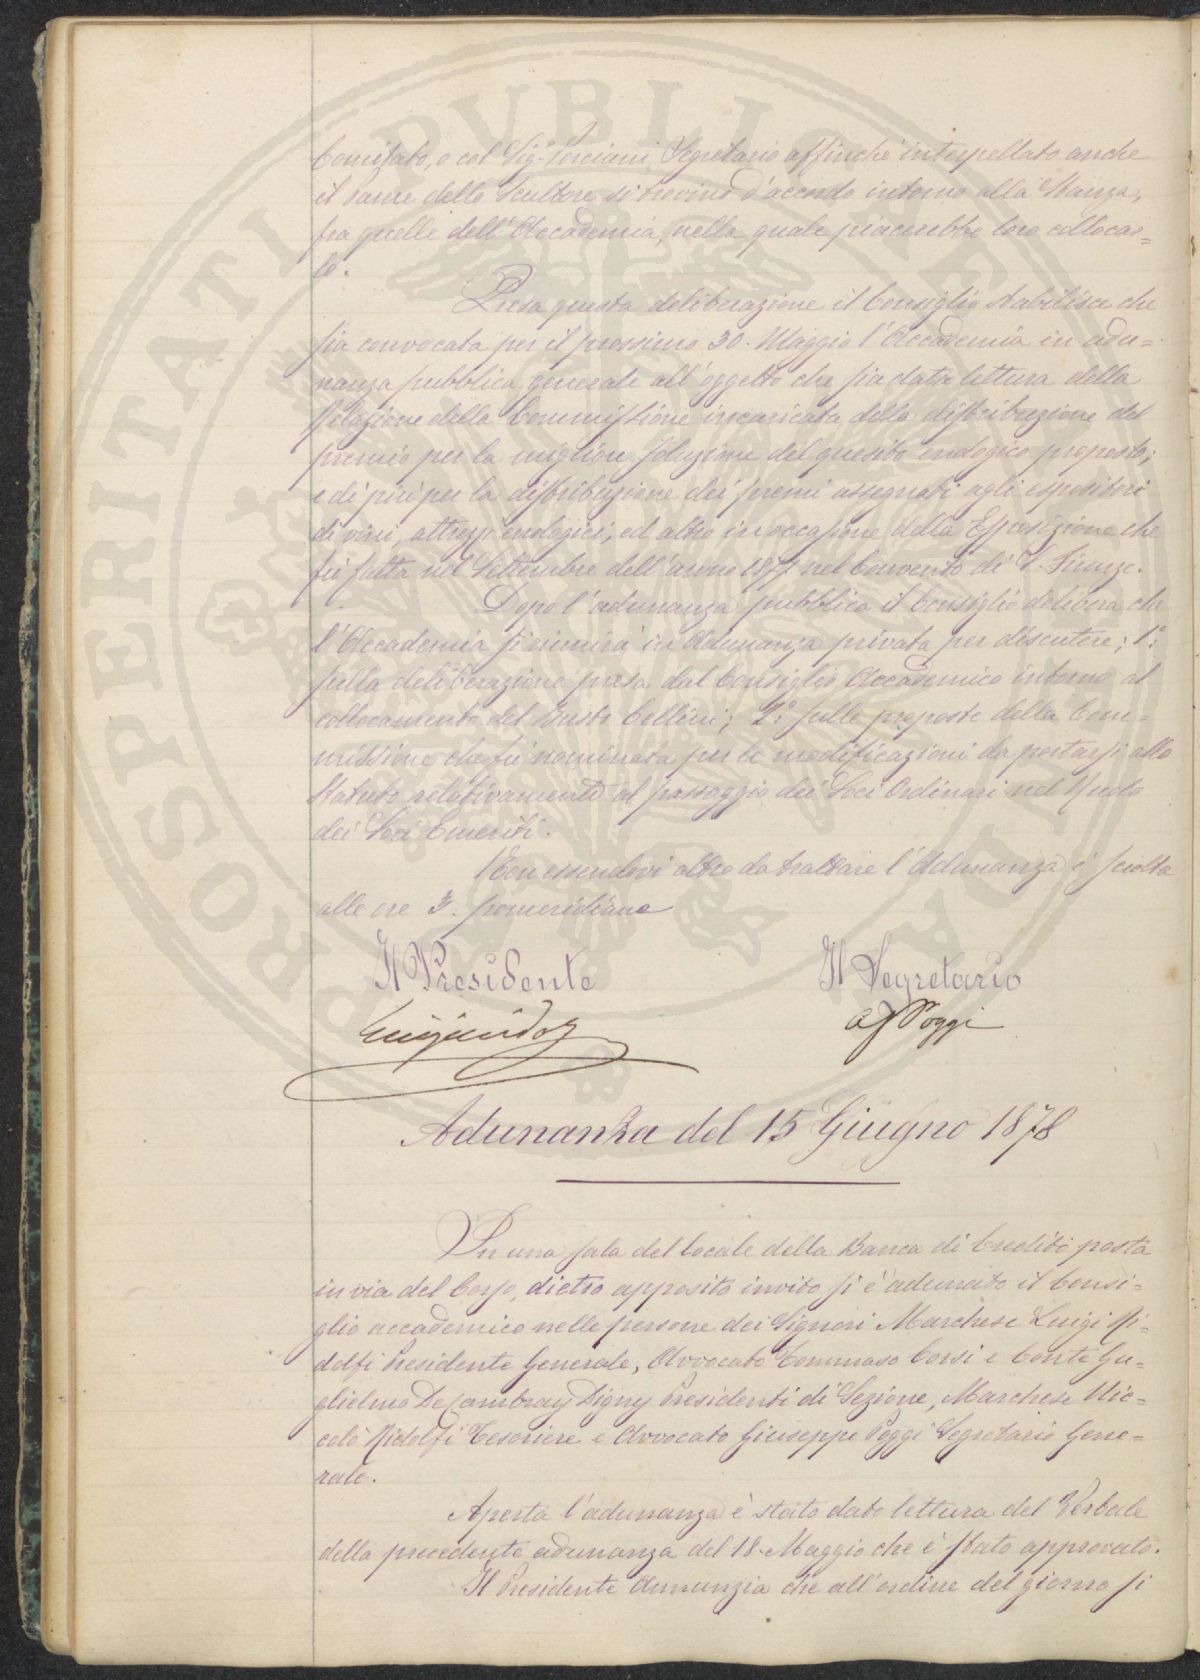 Comitato, o col Sig. Porciani Segretario affinchè interpellato anche
il Parere dello Scultore si trovino d'accordo intorno alla Stanza,
fra quelle dell'Accademia, nella quale piacerebbe loro collocar=
lo.
Presa questa deliberazione il Consiglio stabilisce che
sia convocata per il prossimo 30. Maggio l'Accademia in adu=
nanza pubblica generale all'oggetto che sia data lettura della
Relazione della Commissione incaricata della distribuzione del
premio per la migliore soluzione del quesito enologico proposto;
e di più per la distribuzione dei premi assegnati agli espositori
di vini, attrezzi enologici, ed altro in occasione della Esposizione che
fù fatta nel Settembre dell'anno 1877 nel Convento di S. Firenze.
Dopo l'adunanza pubblica il Consiglio delibera che
l'Accademia si riunirà in Adunanza privata per discutere; 1.°
sulla deliberazione presa dal Consiglio Accademico intorno al
collocamento del Busto Cellini; 2.° sulle proposte della Com=
missione che fù nominata per le modificazioni da portarsi allo
Statuto relativamente al passaggio dei Soci Ordinari nel Ruolo
dei Soci Emeriti.
Non essendovi altro da trattare l'Adunanza è sciolta
alle ore 3. pomeridiane
Il Presidente
Il Segretario
G Poggi
Adunanza del 15 Giugno 1878
In una sala del locale della Banca di Credito posta
in via del Corso, dietro apposito invito si è adunato il Consi=
glio accademico nelle persone dei Signori Marchese Luigi Ri=
dolfi Presidente Generale, Avvocato Tommaso Corsi e Conte Gu=
glielmo De Cambray Digny Presidenti di Sezione, Marchese Nic=
colò Ridolfi Tesoriere e Avvocato Giuseppe Poggi Segretario Gene=
rale.
Aperta l'adunanza è stato dato lettura del Verbale
della precedente adunanza del 18. Maggio che è stato approvato.
Il Presidente Annunzia che all'ordine del giorno si
PROSPERITATI PVBLICAE